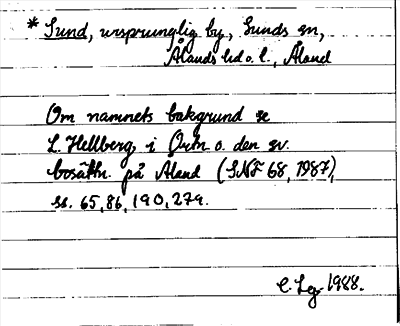 * Sund, ursprunglig by, Sunds sn,
Ålands hd o. l., Åland
Om namnets bakgrund se
L. Hellberg i Ortn. o. den sv.
bosättn. på Åland (SNF 68, 1987),
ss. 65, 86, 190, 279.
C. Lg 1988.